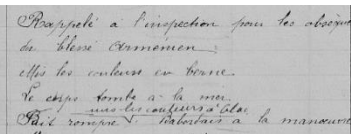 Rappelé à l'inspection pour les obsèques
du blessé Arménien ;
mis les couleurs en berne
Le corps tombe à la mer
mis les couleurs à bloc
Fait rompre. Babordais à la manœuvre